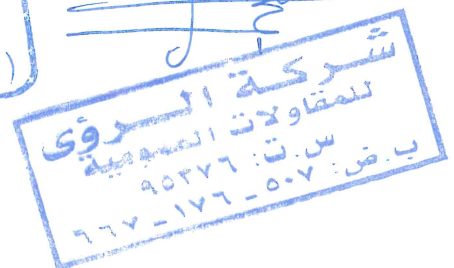 شركة الرؤى
للمقاولات العمومية
س.ت: ٩٥٣٧٦
ب.ض: ٥٠٧ - ١٧٦ - ٦٦٧